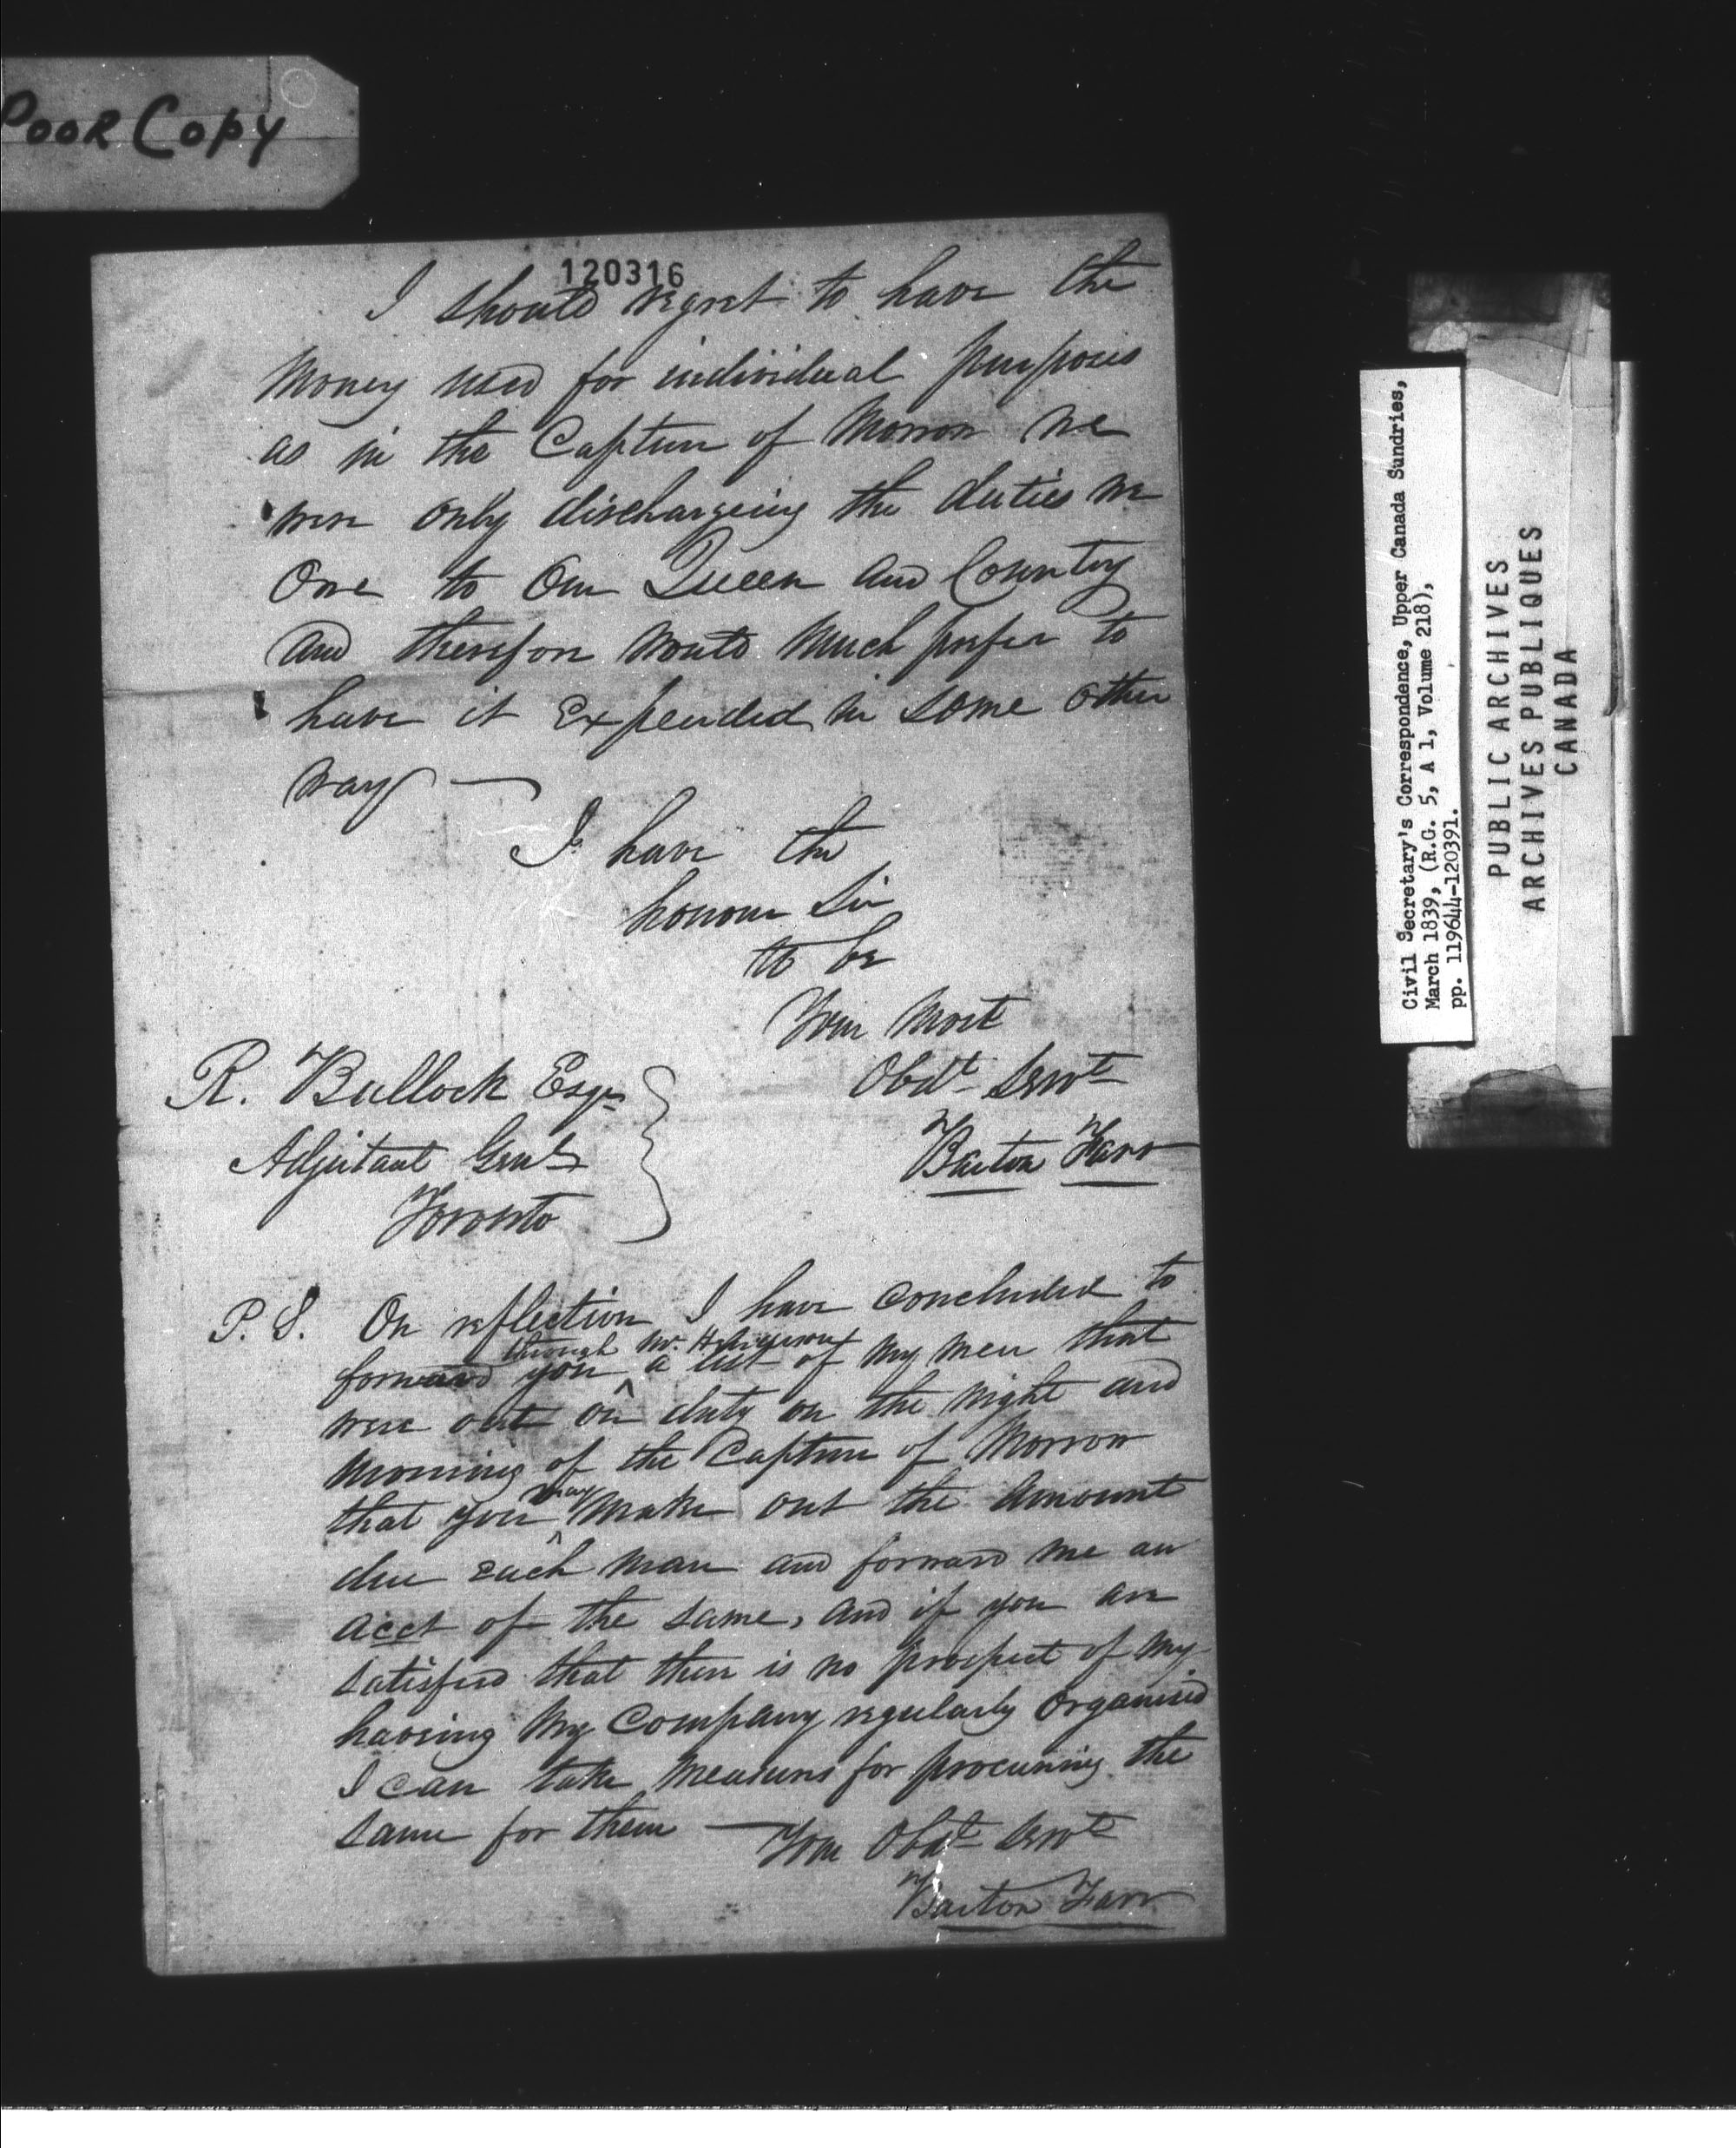 Poor Copy
120316
I should regret to have the
Money used for individual purposes
as in the Capture of Morrow we
were only dischargeing the duties we
Owe to Our Queen and Country
and therefore would Much prefer to
have it Expended in some other
way —
I have the
honour Sir
to be
Your Most
Obdt Servt
Barton Farr
R. Bullock Esqr
Adjutant Genl
Toronto
P. S. On reflection I have concluded to
through Mr.
forward you a list of My men that
were out on duty on the night and
morning of the Capture of Morrow
may
that you make out the Amount
due each man and forward me an
acct of the same, and if you are
satisfied that there is no prospect of My
having My Company regularly Organised
I can take Measures for procuring the
same for them — Your Obdt Servt
Barton Farr
Civil Secretary's Correspondence, Upper Canada Sundries,
March 1839, (R.G. 5, A 1, Volume 218),
pp. 119644-120391.
PUBLIC ARCHIVES
ARCHIVES PUBLIQUES
CANADA